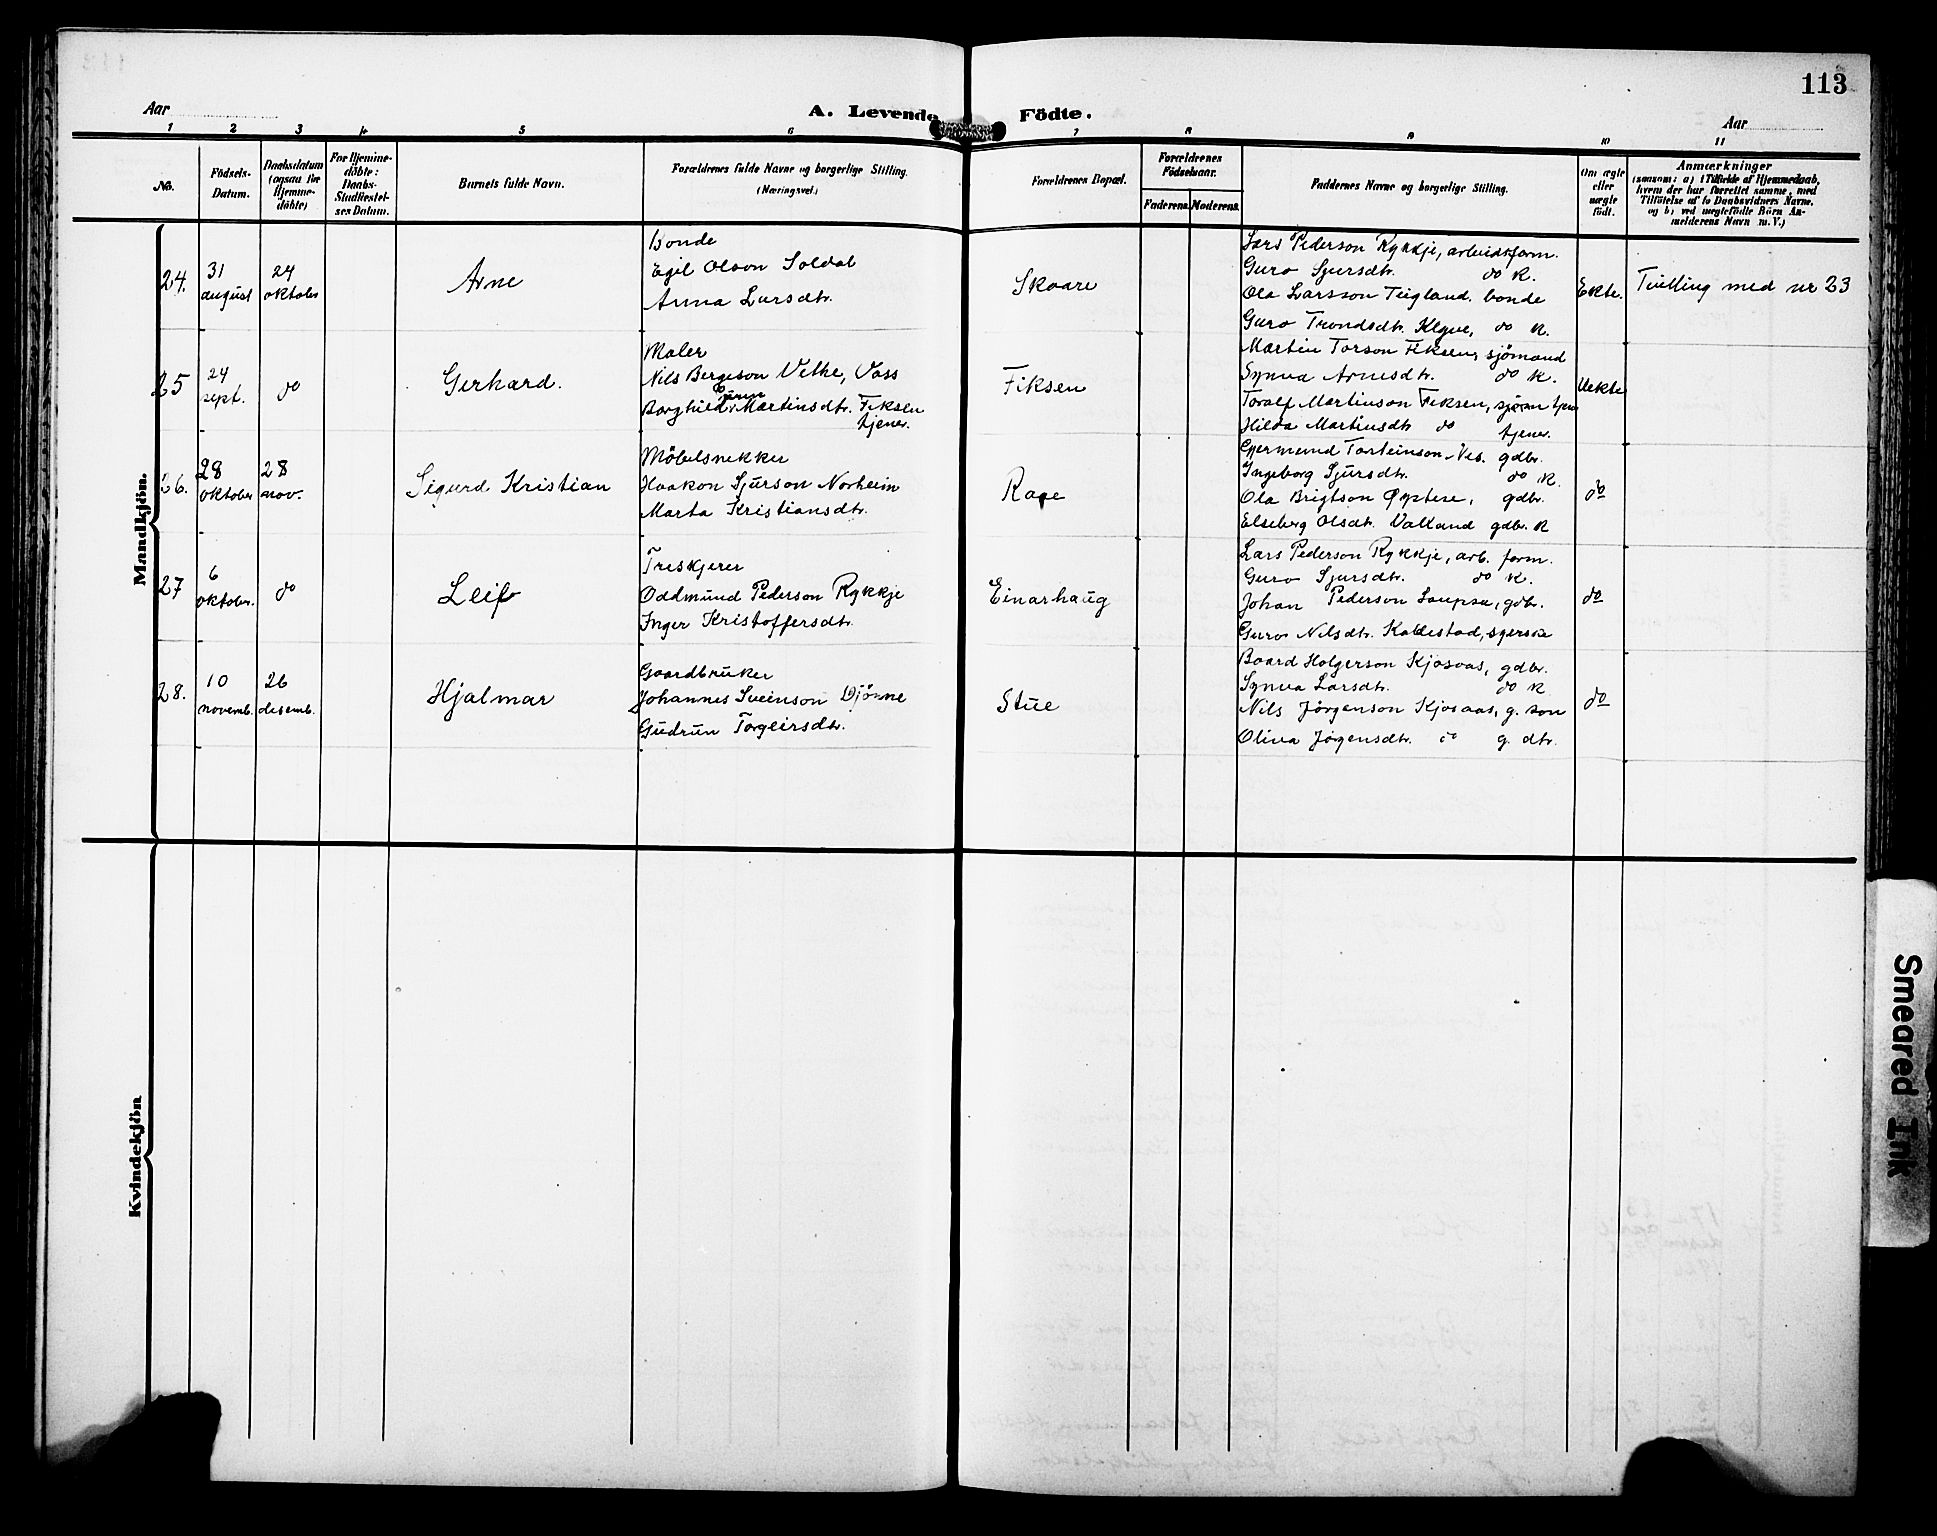 113
Aar
A. Levende Födte.
Aar
1 2 3 4 5 6 7 8 9 10 11
No.
Födsels-
Datum.
Daabsdatum
(ogsaa for
Hjemme-
döbte)
For Hjemme-
döbte:
Daabs-
Stadfæstel-
ses Datum.
Barnets fulde Navn.
Forældrenes fulde Navne og borgerlige Stilling.
(Næringsvei.)
Forældrenes Bopæl.
Forældrenes
Födselsaar.
Faderens. Moderens.
Faddernes Navne og borgerlige Stilling.
Om ægte
eller
uægte
födt.
Anmærkninger
(saasom: a) i Tilfælde af Hjemmedaab,
hvem der har forrettet samme, med
Tilföielse af to Daabsvidners Navne.
og b) ved uægtefödte Börn An-
melderens Navn m. V.)
Mandkjön.
24.
31
august
24
oktober
Arne
Bonde
Egil Olson Soldal
Anna Larsdtr.
Skaare
Lars Pederson Rykkje, arbeidsform.
Guro Sjursdtr. do k.
Ola Larsson Teigland, bonde
Guro Trondsdtr. Klyve, do k.
Ekte.
Tvilling med nr 23
25
24
sept.
do
Gerhard.
Maler
Nils Bergeson Vethe, Voss
Borghild Martinsdtr. Fiksen
tjener.
Fiksen
Martin Torson Fiksen, sjömand
Synva Arnesdtr. do k.
Toralf Martinson Fiksen,
Hilda Martinsdtr do tjener.
Uekte
26.
28
oktober
28
nov.
Sigurd Kristian
Möbelsnekker
Haakon Sjurson Norheim
Marta Kristiansdtr.
Gjermund Torsteinson Nes. gdbr.
Ingeborg Sjursdtr. do k.
Ola Brigtson Øystese, gdbr.
Elseberg Olsdtr. Valland gdbr. k
do
27
6
oktober.
do
Leif
Treskjerer
Oddmund Pederson Rykkje
Inger Kristoffersdtr.
Einarhaug
Lars Pederson Rykkje, arb. form.
Guro Sjursdtr. do k.
Johan Pederson Laupsa, gdbr.
Guro Nilsdtr. Kaldestad, syerske
do
28.
10
novemb.
26
desemb.
Hjalmar
Gaardbruker
Johannes Sveinson Djönne
Gudrun Torgeirsdtr.
Stue
Baard Holgerson Kjosaas, gdbr.
Synva Larsdtr. do k
Nils Jörgenson Kjosaas, g. son
Oliva Jörgensdtr. do g. dtr.
do
Kvindekjön
Smeared Ink